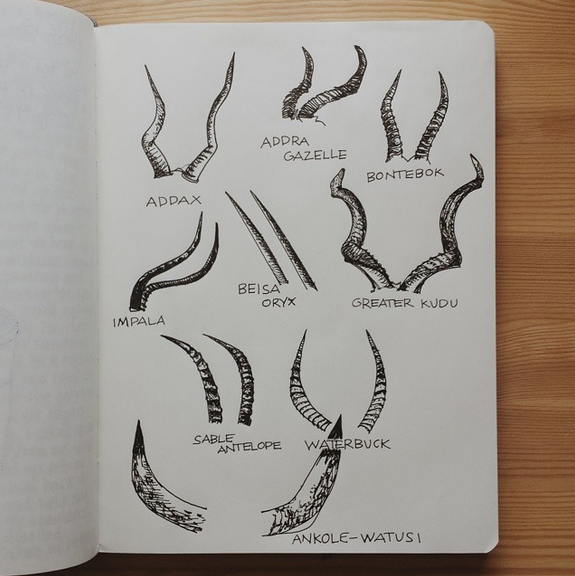 ADDRA
GAZELLE
BONTEBOK
ADDAX
BEISA
ORYX
GREATER KUDU
IMPALA
SABLE
ANTELOPE
WATERBUCK
ANKOLE-WATUSI